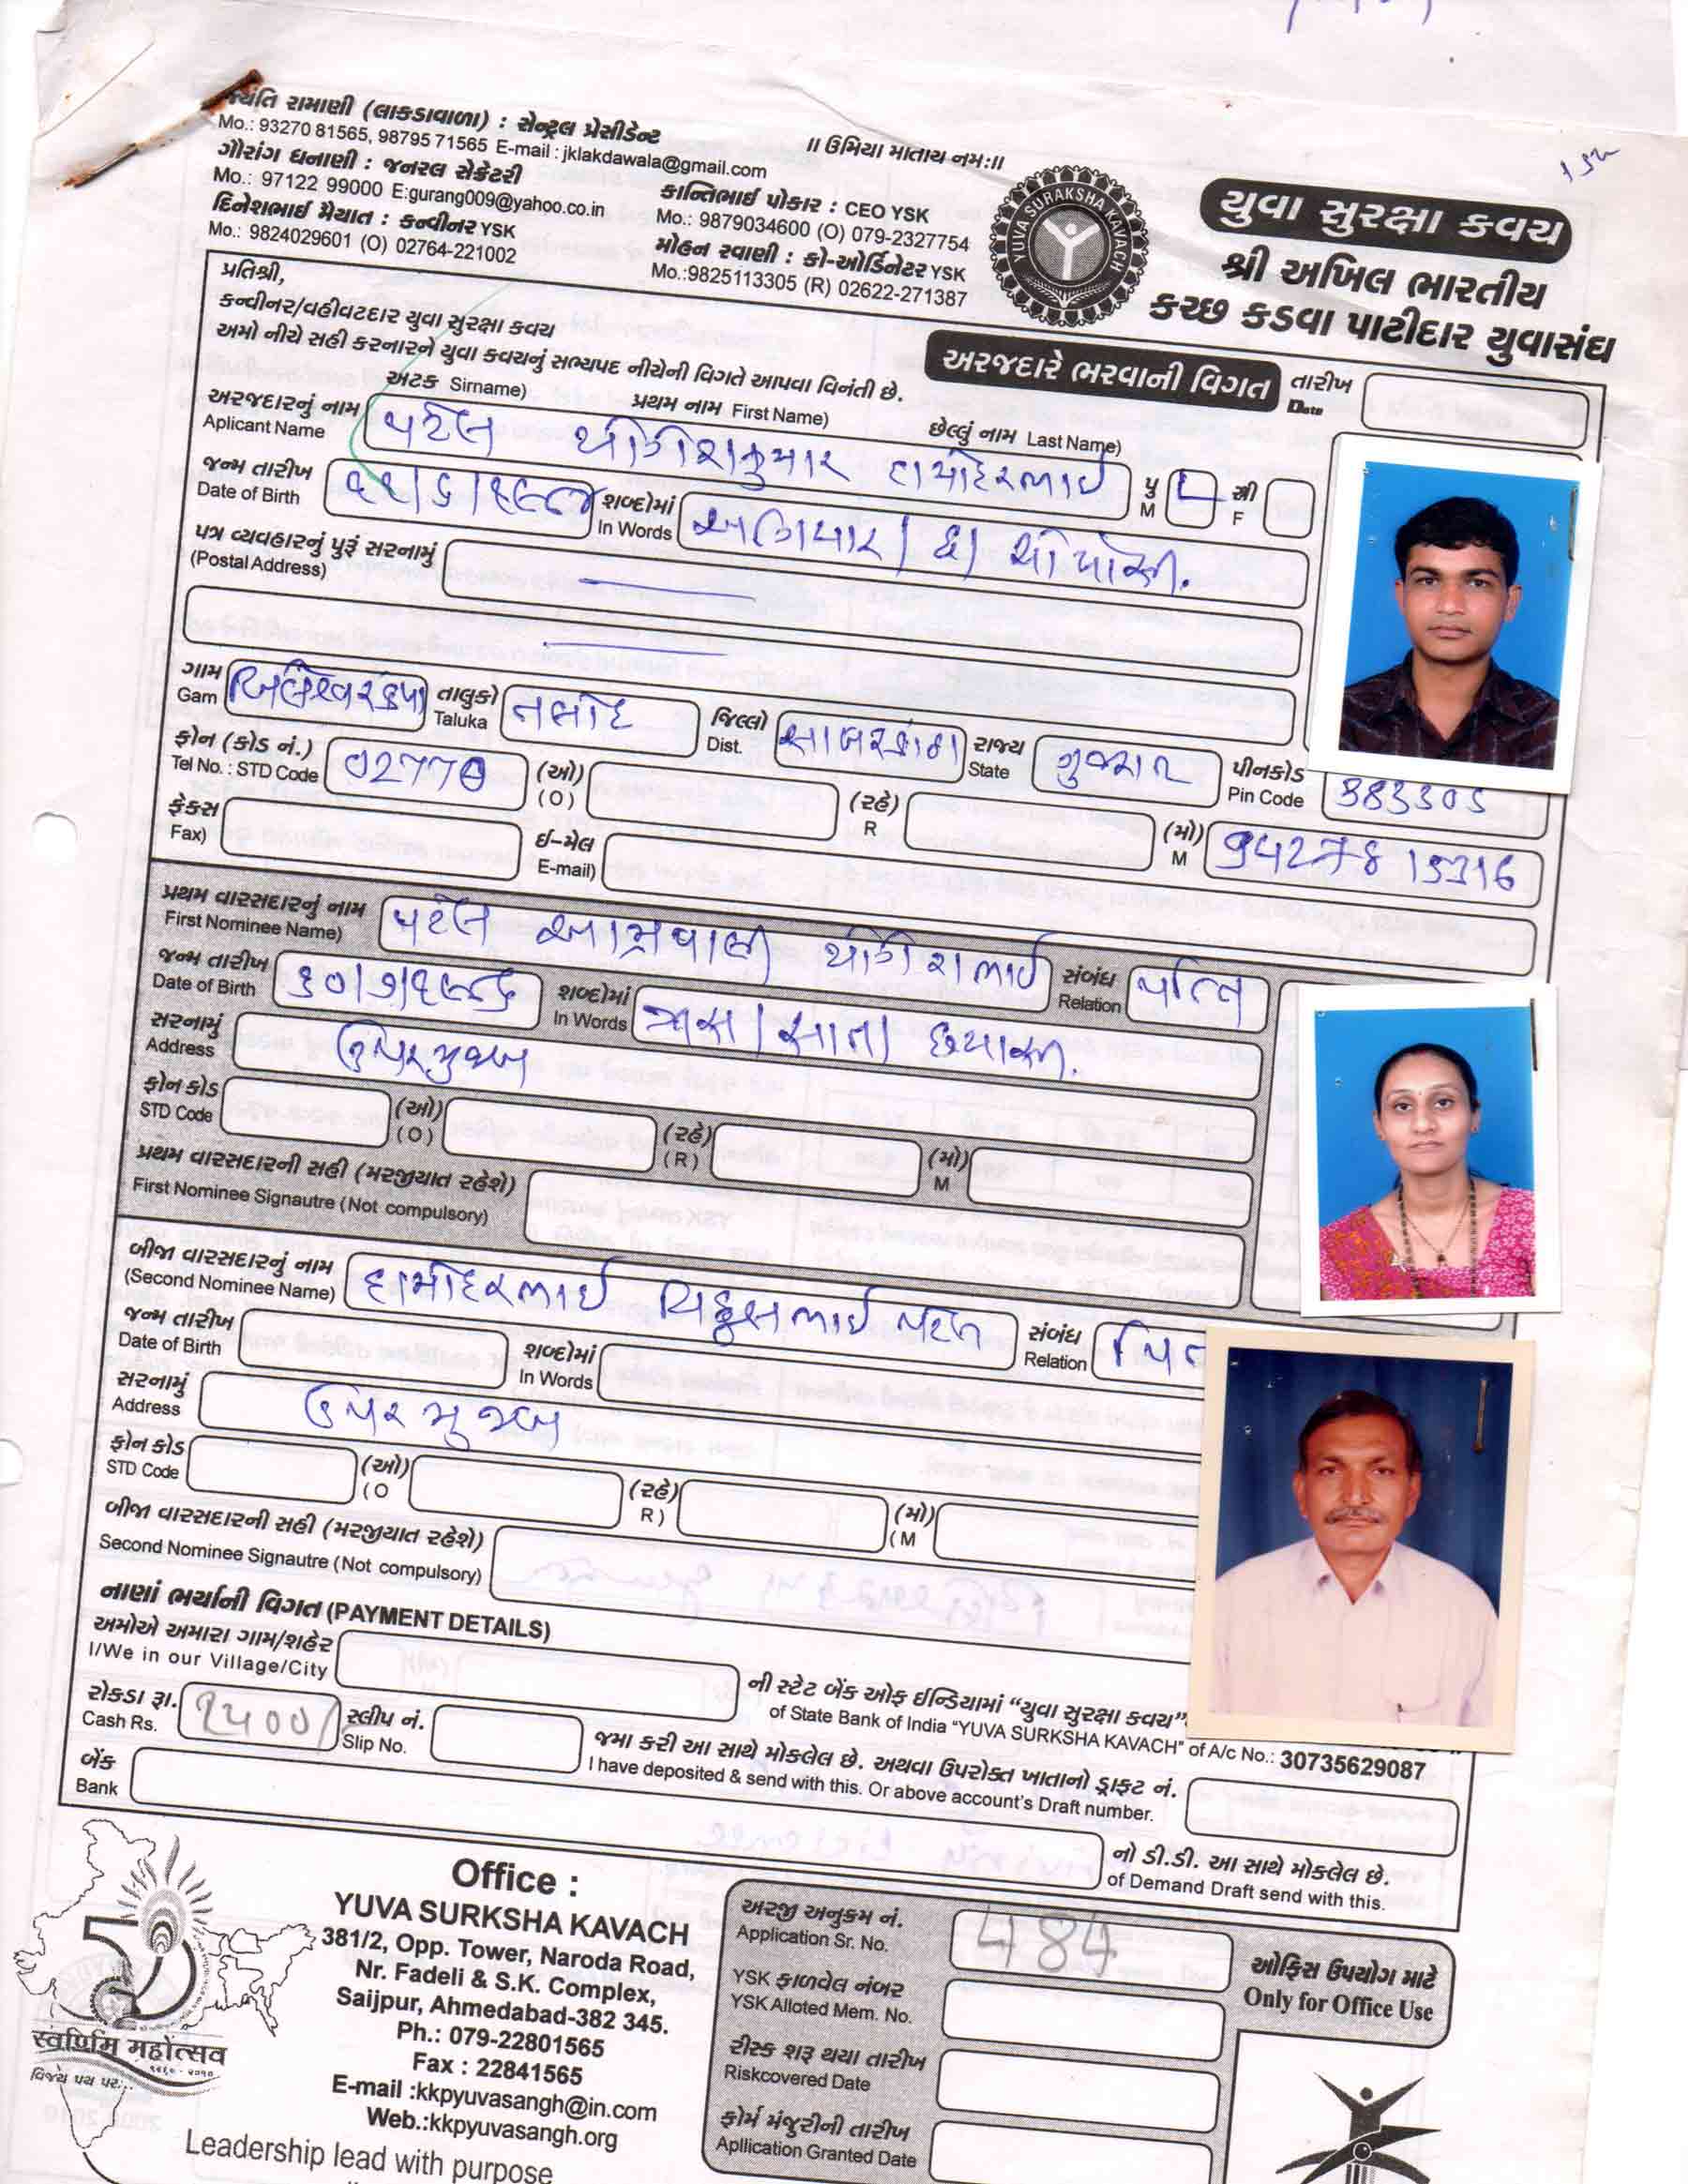 જયંતિ રામાણી (લાકડાવાળા) : સેન્ટ્રલ પ્રેસીડેન્ટ
Mo.: 93270 81565, 98795 71565 E-mail : jklakdawala@gmail.com
ગૌરાંગ ધનાણી : જનરલ સેક્રેટરી
Mo.: 97122 99000 E:gurang009@yahoo.co.in
દિનેશભાઈ મૈયાત : કન્વીનર YSK
Mo.: 9824029601 (O) 02764-221002
॥ ઉમિયા માતાય નમઃ॥
કાન્તિભાઈ પોકાર : CEO YSK
Mo.: 9879034600 (O) 079-2327754
મોહન રવાણી : કો-ઓર્ડિનેટર YSK
Mo.:9825113305 (R) 02622-271387
YUVA SURAKSHA KAVACH
યુવા સુરક્ષા કવચ
શ્રી અખિલ ભારતીય
કચ્છ કડવા પાટીદાર યુવાસંઘ
પ્રતિશ્રી,
કન્વીનર/વહીવટદાર યુવા સુરક્ષા કવચ
અમો નીચે સહી કરનારને યુવા કવચનું સભ્યપદ નીચેની વિગતે આપવા વિનંતી છે.
અરજદારે ભરવાની વિગત તારીખ Date
અટક Sirname) પ્રથમ નામ First Name) છેલ્લું નામ Last Name)
અરજદારનું નામ Aplicant Name પટેલ યોગેશકુમાર દામોદરભાઈ પુ M સ્ત્રી F
જન્મ તારીખ Date of Birth ૧૧/૬/૧૯૮૪ શબ્દોમાં In Words અગિયાર/ છ/ ચોર્યાસી.
પત્ર વ્યવહારનું પુરૂં સરનામું (Postal Address)
ગામ Gam તાલુકો Taluka તલોદ જિલ્લો Dist. સાબરકાંઠા રાજ્ય State ગુજરાત પીનકોડ Pin Code 383305
ફોન (કોડ નં.) Tel No. : STD Code 02770 (ઓ) (O) (રહે) R (મો) M
ફેકસ Fax) ઈ-મેલ E-mail)
પ્રથમ વારસદારનું નામ First Nominee Name) પટેલ આમ્રપાલી યોગેશભાઈ સંબંધ Relation પત્નિ
જન્મ તારીખ Date of Birth ૩૦/૭/૧૯૮૬ શબ્દોમાં In Words ત્રીસ/સાત/ છયાસી.
સરનામું Address ઉપર મુજબ
ફોન કોડ STD Code (ઓ) (O) (રહે) (R) (મો) M
પ્રથમ વારસદારની સહી (મરજીયાત રહેશે)
First Nominee Signautre (Not compulsory)
બીજા વારસદારનું નામ (Second Nominee Name) દામોદરભાઈ પટેલ સંબંધ Relation
જન્મ તારીખ Date of Birth શબ્દોમાં In Words
સરનામું Address ઉપર મુજબ
ફોન કોડ STD Code (ઓ) (O (રહે) R) (મો) (M
બીજા વારસદારની સહી (મરજીયાત રહેશે)
Second Nominee Signautre (Not compulsory)
નાણાં ભર્યાની વિગત (PAYMENT DETAILS)
અમોએ અમારા ગામ/શહેર ની સ્ટેટ બેંક ઓફ ઈન્ડિયામાં “યુવા સુરક્ષા કવચ”
I/We in our Village/City of State Bank of India “YUVA SURKSHA KAVACH” of A/c No.: 30735629087
રોકડા રૂા. સ્લીપ નં. જમા કરી આ સાથે મોકલેલ છે. અથવા ઉપરોક્ત ખાતાનો ડ્રાફટ નં.
Cash Rs. Slip No. I have deposited & send with this. Or above account's Draft number.
બેંક Bank નો ડી.ડી. આ સાથે મોકલેલ છે.
of Demand Draft send with this.
Office :
YUVA SURKSHA KAVACH
381/2, Opp. Tower, Naroda Road,
Nr. Fadeli & S.K. Complex,
Saijpur, Ahmedabad-382 345.
Ph.: 079-22801565
Fax : 22841565
E-mail :kkpyuvasangh@in.com
Web.:kkpyuvasangh.org
Leadership lead with purpose
50
स्वर्णिम महोत्सव
૧૯૬૦ - ૨૦૧૦
વિજય પથ પર...
અરજી અનુક્રમ નં. Application Sr. No. 484
YSK ફાળવેલ નંબર
YSK Alloted Mem. No.
રીસ્ક શરૂ થયા તારીખ
Riskcovered Date
ફોર્મ મંજુરીની તારીખ
Apllication Granted Date
ઓફિસ ઉપયોગ માટે
Only for Office Use